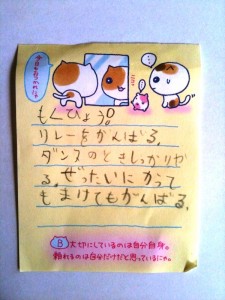 もくひょう!
リレーをがんばる。
ダンスのときしっかりや
る。ぜったいにかって
もまけてもがんばる。
B 大切にしているのは自分自身。
頼れるのは自分だけだと思っているにゃ。